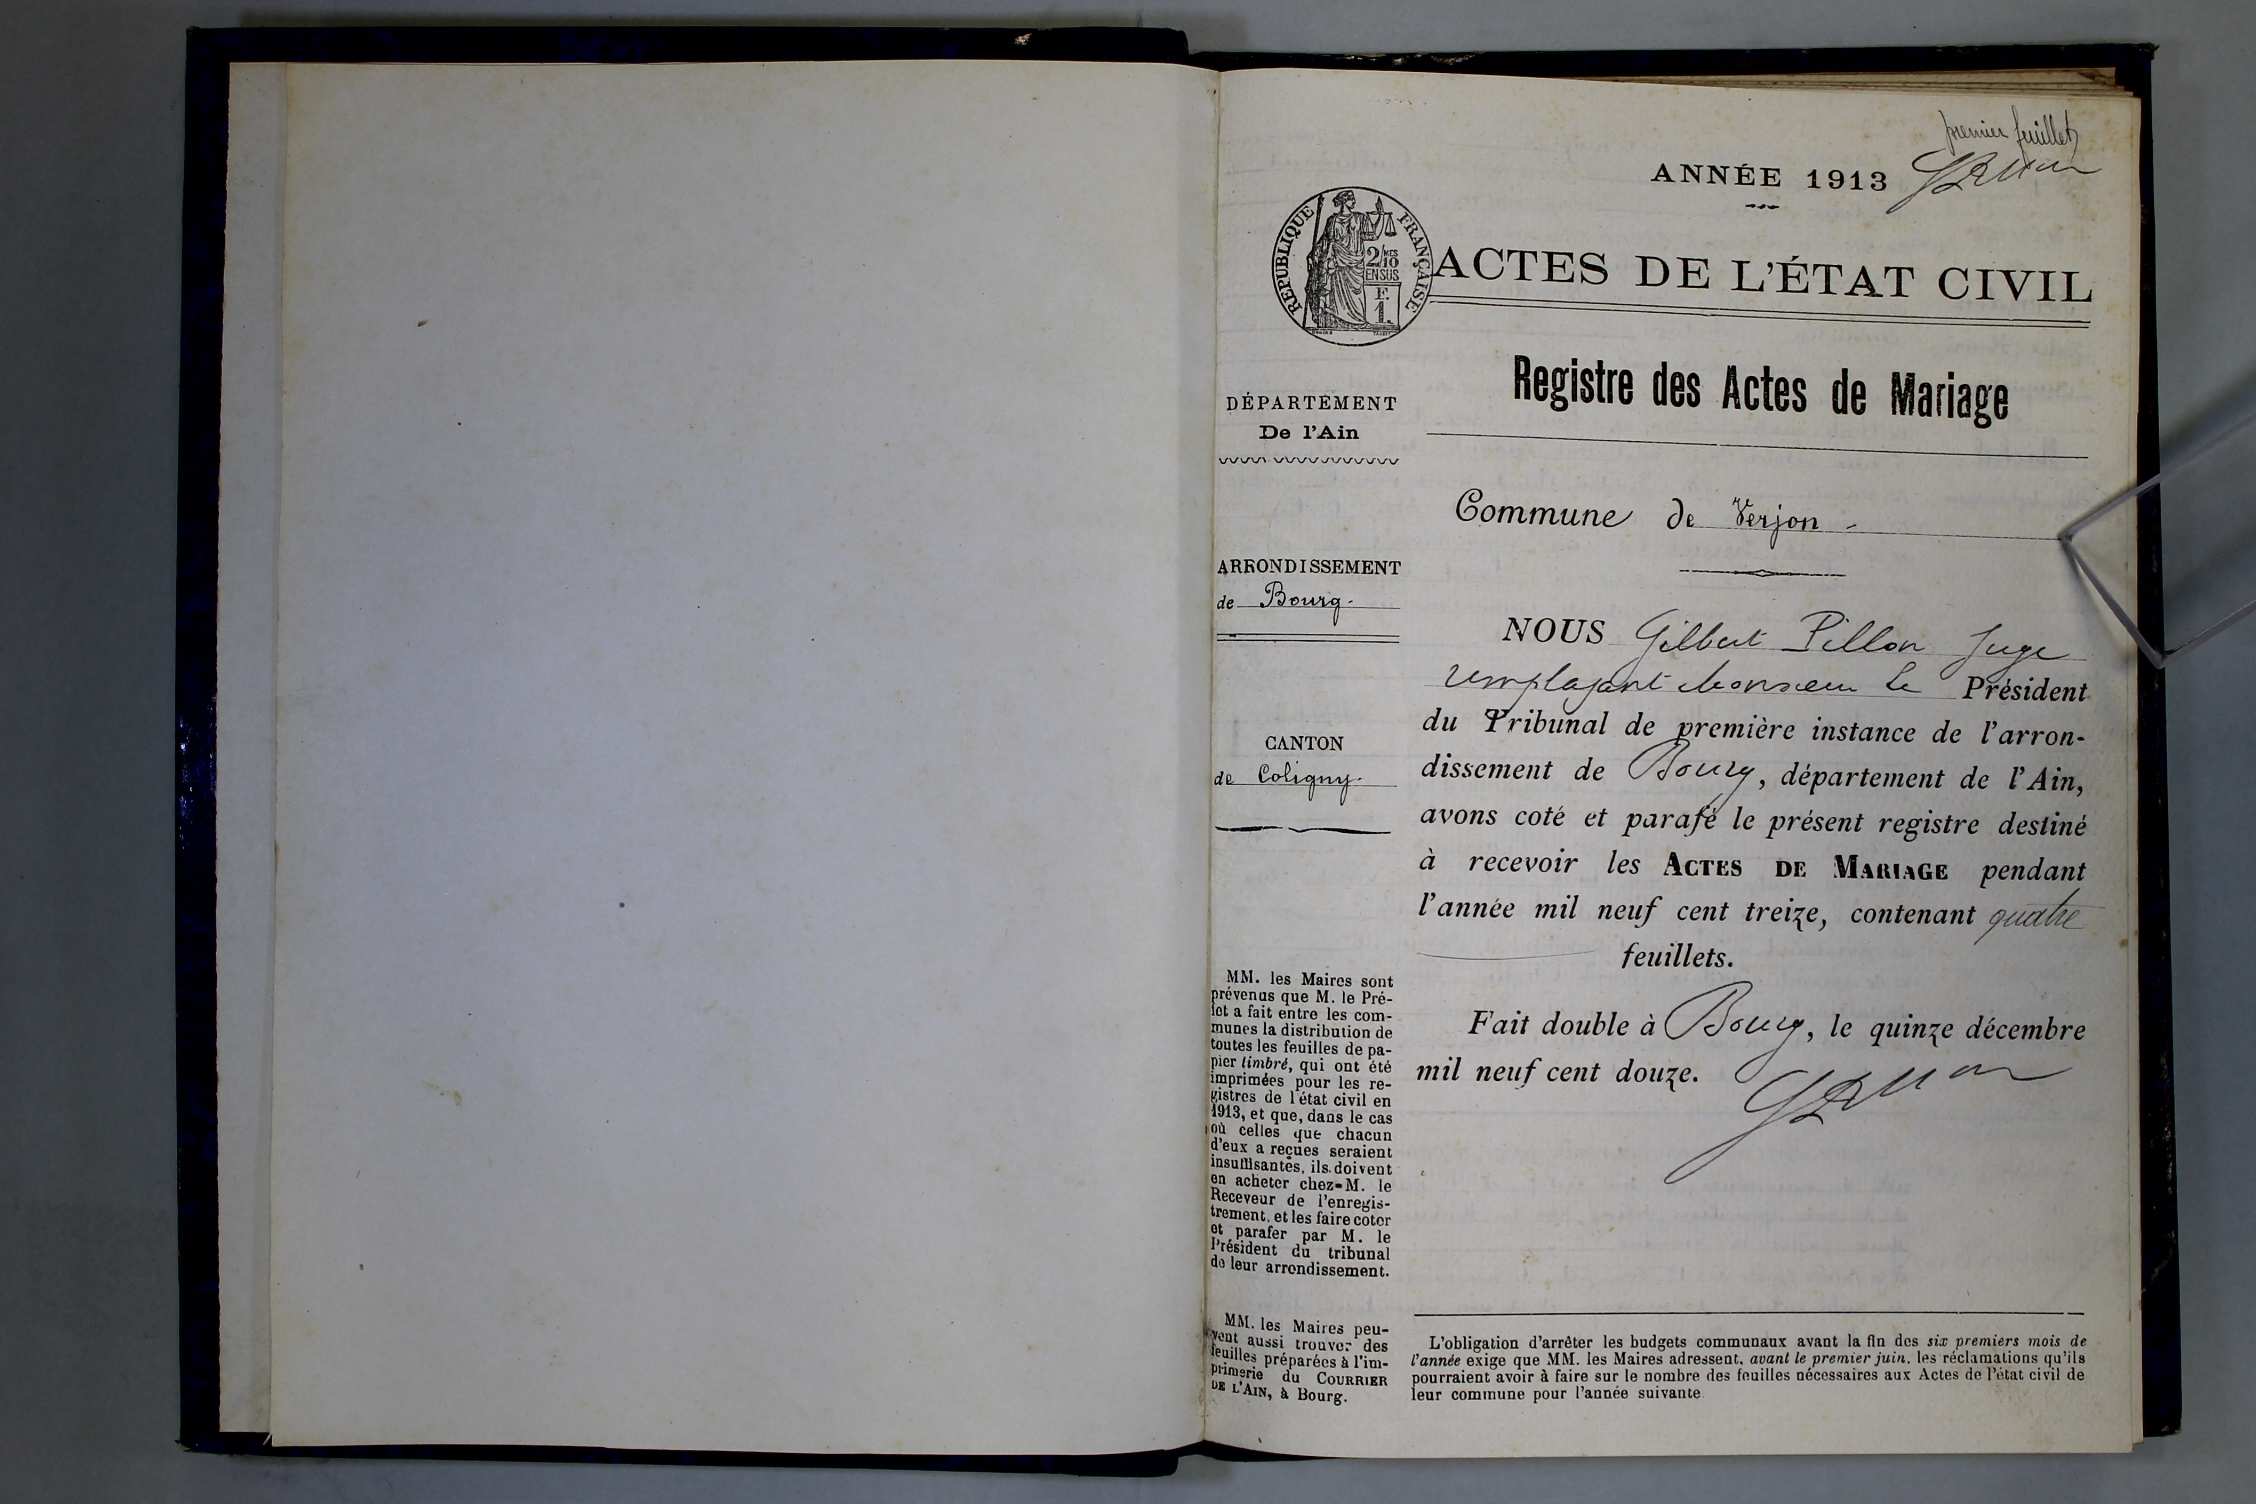 premier feuillet
ANNÉE 1913
RÉPUBLIQUE FRANÇAISE
2/10 MES
EN SUS
F.
1.
ACTES DE L'ÉTAT CIVIL
Registre des Actes de Mariage
DÉPARTEMENT
De l'Ain
Commune de Verjon
ARRONDISSEMENT
de Bourg.
CANTON
de Coligny.
NOUS Gilbert Pillon Juge
remplaçant Monsieur le Président
du Tribunal de première instance de l'arron-
dissement de Bourg, département de l'Ain,
avons coté et parafé le présent registre destiné
à recevoir les ACTES DE MARIAGE pendant
l'année mil neuf cent treize, contenant quatre
feuillets.
Fait double à Bourg, le quinze décembre
mil neuf cent douze.
MM. les Maires sont
prévenus que M. le Pré-
fet a fait entre les com-
munes la distribution de
toutes les feuilles de pa-
pier timbré, qui ont été
imprimées pour les re-
gistres de l'état civil en
1913, et que, dans le cas
où celles que chacun
d'eux a reçues seraient
insuffisantes, ils doivent
en acheter chez M. le
Receveur de l'enregis-
trement, et les faire coter
et parafer par M. le
Président du tribunal
de leur arrondissement.
MM. les Maires peu-
vent aussi trouver des
feuilles préparées à l'im-
primerie du COURRIER
DE L'AIN, à Bourg.
L'obligation d'arrêter les budgets communaux avant la fin des six premiers mois de
l'année exige que MM. les Maires adressent, avant le premier juin, les réclamations qu'ils
pourraient avoir à faire sur le nombre des feuilles nécessaires aux Actes de l'état civil de
leur commune pour l'année suivante